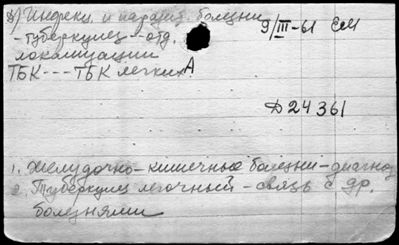 8) Инфекц. и паразит. болезни
-туберкулез--отд. 9/III-61
локализации
ТБК---ТБК легких. А
Д 24361
1. Желудочно-кишечные болезни-диагноз
2. Туберкулез легочный-связь с др.
болезнями